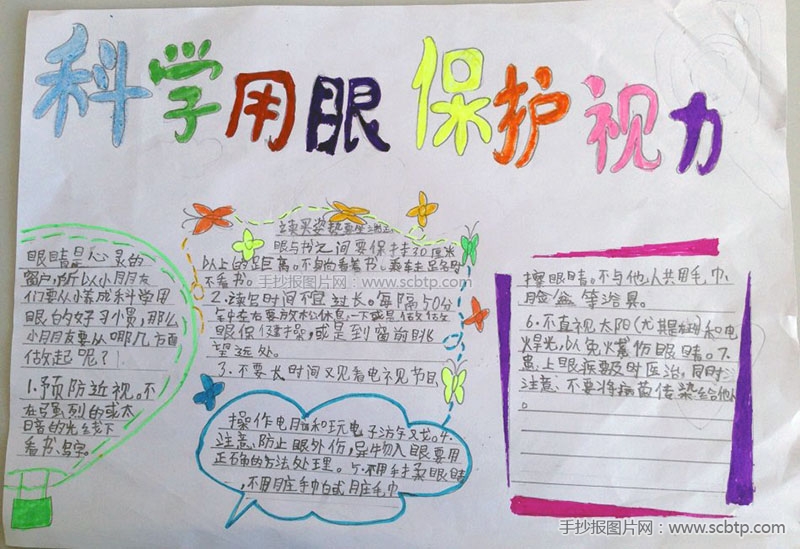 科学用眼 保护视力
眼睛是心灵的
窗户,所以小朋友
们要从小养成科学用
眼的好习惯,那么
小朋友要从哪几方面
做起呢?
1.预防近视。不
在强烈的或太
暗的光线下
看书、写字。
读写姿势要
眼与书之间要保持30厘米
以上的距离。不躺着看书。乘车走路时
不看书。
2.读写时间不宜过长。每隔50分
钟左右要放松休息一下或是做做
眼保健操,或是到窗前眺
望远处。
3.不要长时间观看电视节目
操作电脑和玩电子游戏。4.
注意防止眼外伤,异物入眼要用
正确的方法处理。5.不用手揉眼睛
,不用脏手巾或脏毛巾
擦眼睛。不与他人共用毛巾、
脸盆等浴具。
6.不直视太阳(尤其是)和电
焊光,以免灼伤眼睛。7.
患上眼疾要及时医治,同时
注意:不要将病菌传染给他人
。
手抄报图片网:www.scbtp.com